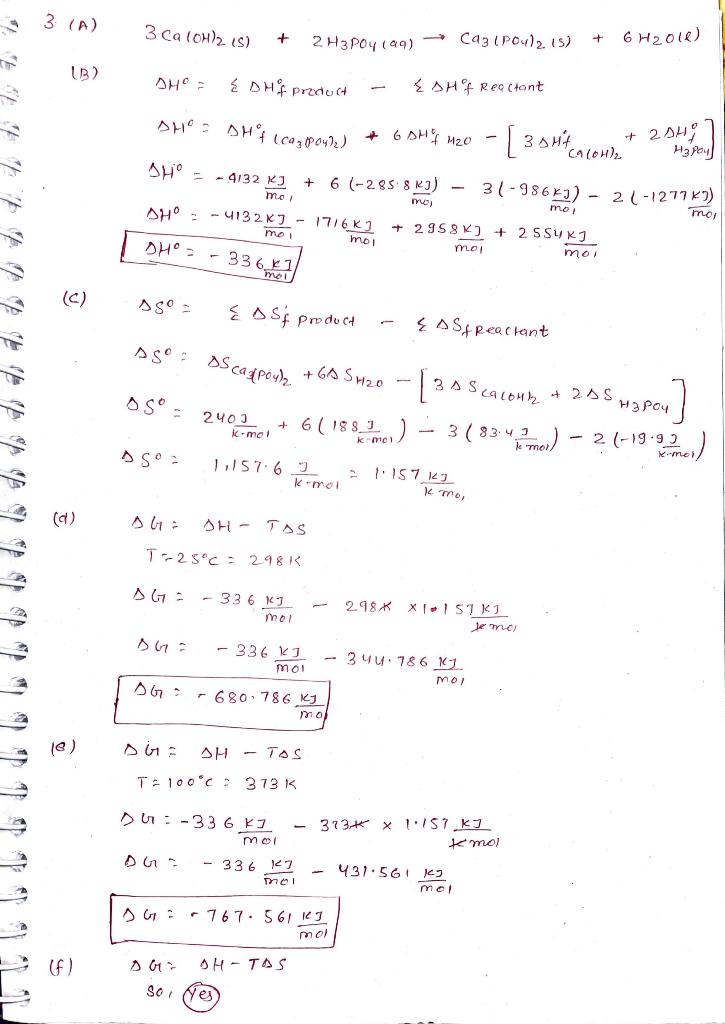 3. (A) 3 Ca(OH)2 (s) + 2H3PO4 (aq) → Ca3(PO4)2 (s) + 6 H2O(l)
(B) ΔH° = Σ ΔH°f product - Σ ΔH°f Reactant
ΔH° = ΔH°f (Ca3(PO4)2) + 6 ΔH°f H2O - [ 3 ΔH°f Ca(OH)2 + 2 ΔH°f H3PO4 ]
ΔH° = -4132 KJ/mol + 6 (-285.8 KJ/mol) - 3(-986 KJ/mol) - 2(-1277 KJ/mol)
ΔH° = -4132 KJ/mol - 1716 KJ/mol + 2958 KJ/mol + 2554 KJ/mol
ΔH° = -336 KJ/mol
(C) ΔS° = Σ ΔSf product - Σ ΔSf Reactant
ΔS° = ΔS Ca3(PO4)2 + 6ΔS H2O - [ 3ΔS Ca(OH)2 + 2ΔS H3PO4 ]
ΔS° = 240 J/K-mol + 6 (188 J/K-mol) - 3 (83.4 J/K-mol) - 2 (-19.9 J/K-mol)
ΔS° = 1,157.6 J/K-mol = 1.157 KJ/K mol
(d) ΔG = ΔH - TΔS
T = 25°C = 298 K
ΔG = -336 KJ/mol - 298K × 1.157 KJ/K mol
ΔG = -336 KJ/mol - 344.786 KJ/mol
ΔG = -680.786 KJ/mol
(e) ΔG = ΔH - TΔS
T = 100°C = 373 K
ΔG = -336 KJ/mol - 373K × 1.157 KJ/K mol
ΔG = -336 KJ/mol - 431.561 KJ/mol
ΔG = -767.561 KJ/mol
(f) ΔG = ΔH - TΔS
So, Yes